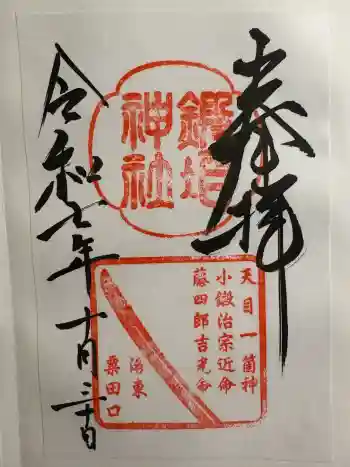 奉拝
鍛冶
神社
天目一箇神
小鍛治宗近命
藤四郎吉光命
洛東
粟田口
令和七年十月三十日